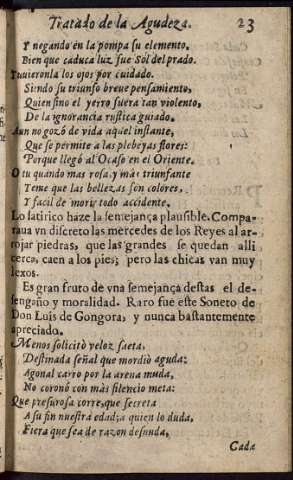 Tratado de la Agudeza. 23
Y negando en la pompa su elemento,
Bien que caduca luz fue Sol del prado.
Tuuieronla los ojos por cuidado.
Siendo su triunfo breue pensamiento,
Quien sino el yerro fuera tan violento,
De la ignorancia rustica guiado.
Aun no gozó de vida aquel instante,
Que se permite a las plebeyas flores:
Porque llegó al Ocaso en el Oriente.
O tu quando mas rosa, y más triunfante
Teme que las bellezas son colores,
Y facil de morir todo accidente.
Lo satirico haze la semejança plausible. Compa-
raua vn discreto las mercedes de los Reyes al ar-
rojar piedras, que las grandes se quedan alli
cerco, caen a los pies; pero las chicas van muy
lexos.
Es gran fruto de vna semejança destas el de-
sengaño y moralidad. Raro fue este Soneto de
Don Luis de Gongora, y nunca bastantemente
apreciado.
Menos solicitó veloz saeta,
Destinada señal que mordió aguda:
Agonal carro por la arena muda,
No coronó con más silencio meta:
Que presurosa corre, que secreta
A su fin nuestra edad; a quien lo duda,
Fiera que sea de razon desnuda,
Cada